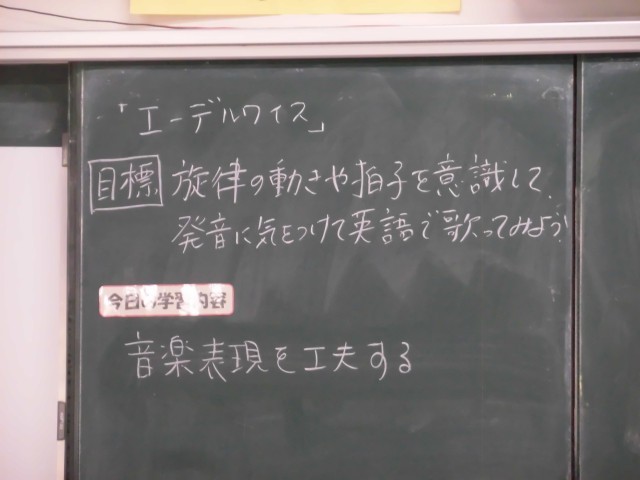 「エーデルワイス」
目標 旋律の動きや拍子を意識して、
発音に気をつけて英語で歌ってみよう!
今日の学習内容
音楽表現を工夫する